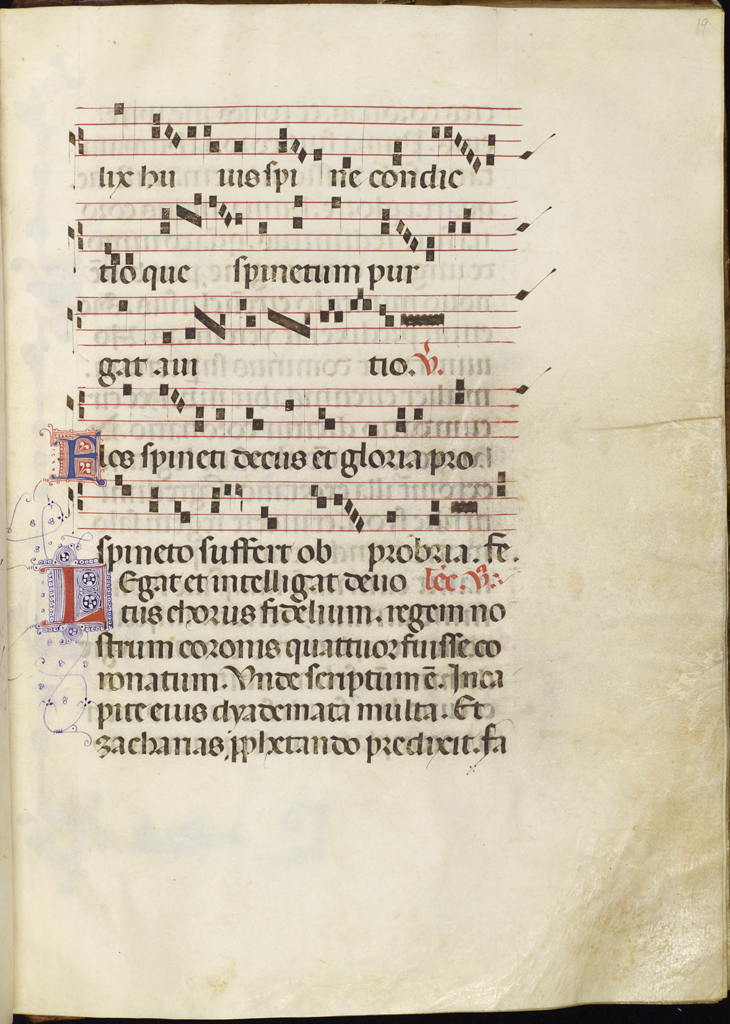 19
lix hu ius spi ne condic
tio que spinetum pur
gat aui tio. ℣.
Flos spineti decus et gloria pro
spineto suffert ob probria. fe.
Egat et intelligat deuo lec. v.
L tus chorus fidelium. regem no
strum coronis quattuor fuisse co
ronatum. Vnde scriptum ē. In ca
pite eius dyademata multa. Et
zacharias, pphetando predixit. fa